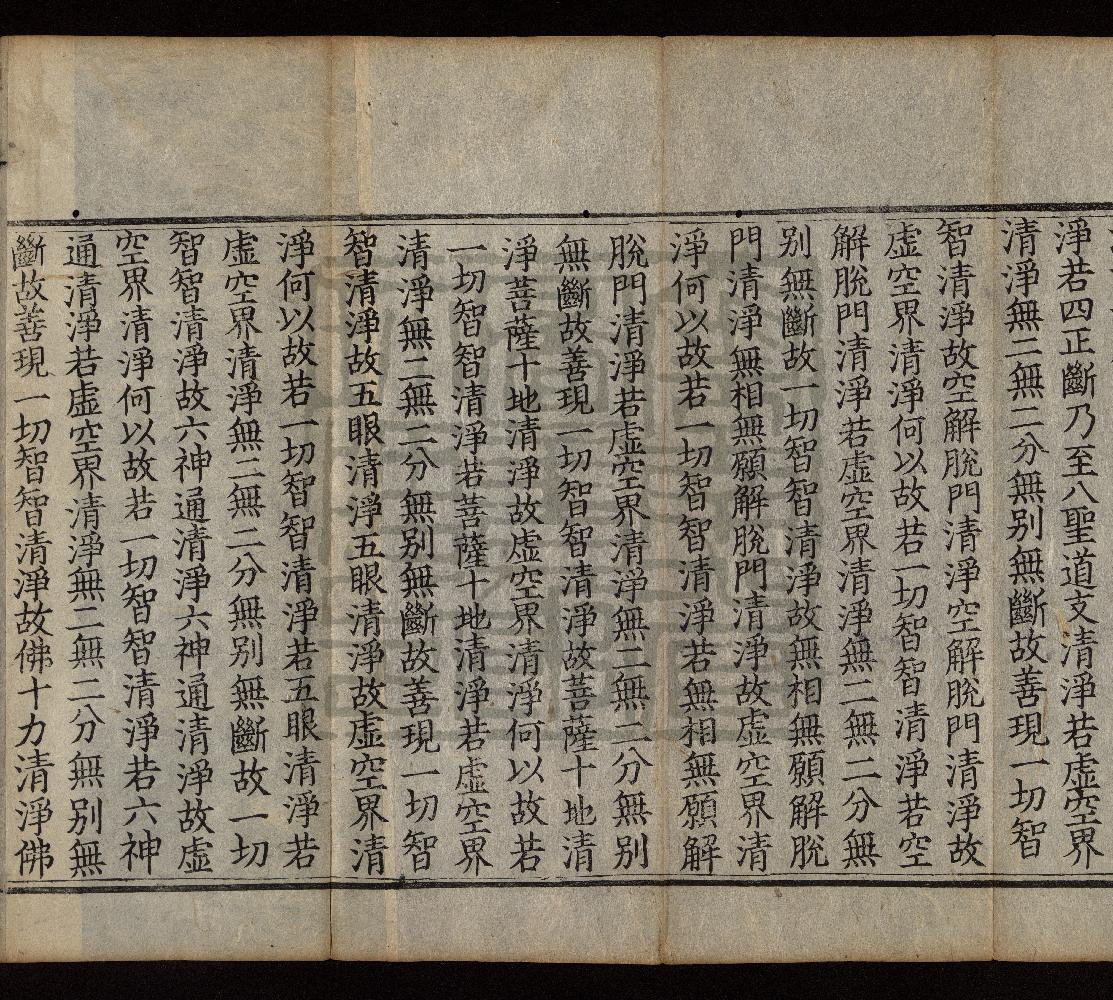 淨若四正斷乃至八聖道支清淨若虛空界
清淨無二無二分無別無斷故善現一切智
智清淨故空解脫門清淨空解脫門清淨故
虛空界清淨何以故若一切智智清淨若空
解脫門清淨若虛空界清淨無二無二分無
別無斷故一切智智清淨故無相無願解脫
門清淨無相無願解脫門清淨故虛空界清
淨何以故若一切智智清淨若無相無願解
脫門清淨若虛空界清淨無二無二分無別
無斷故善現一切智智清淨故菩薩十地清
淨菩薩十地清淨故虛空界清淨何以故若
一切智智清淨若菩薩十地清淨若虛空界
清淨無二無二分無別無斷故善現一切智
智清淨故五眼清淨五眼清淨故虛空界清
淨何以故若一切智智清淨若五眼清淨若
虛空界清淨無二無二分無別無斷故一切
智智清淨故六神通清淨六神通清淨故虛
空界清淨何以故若一切智智清淨若六神
通清淨若虛空界清淨無二無二分無別無
斷故善現一切智智清淨故佛十力清淨佛